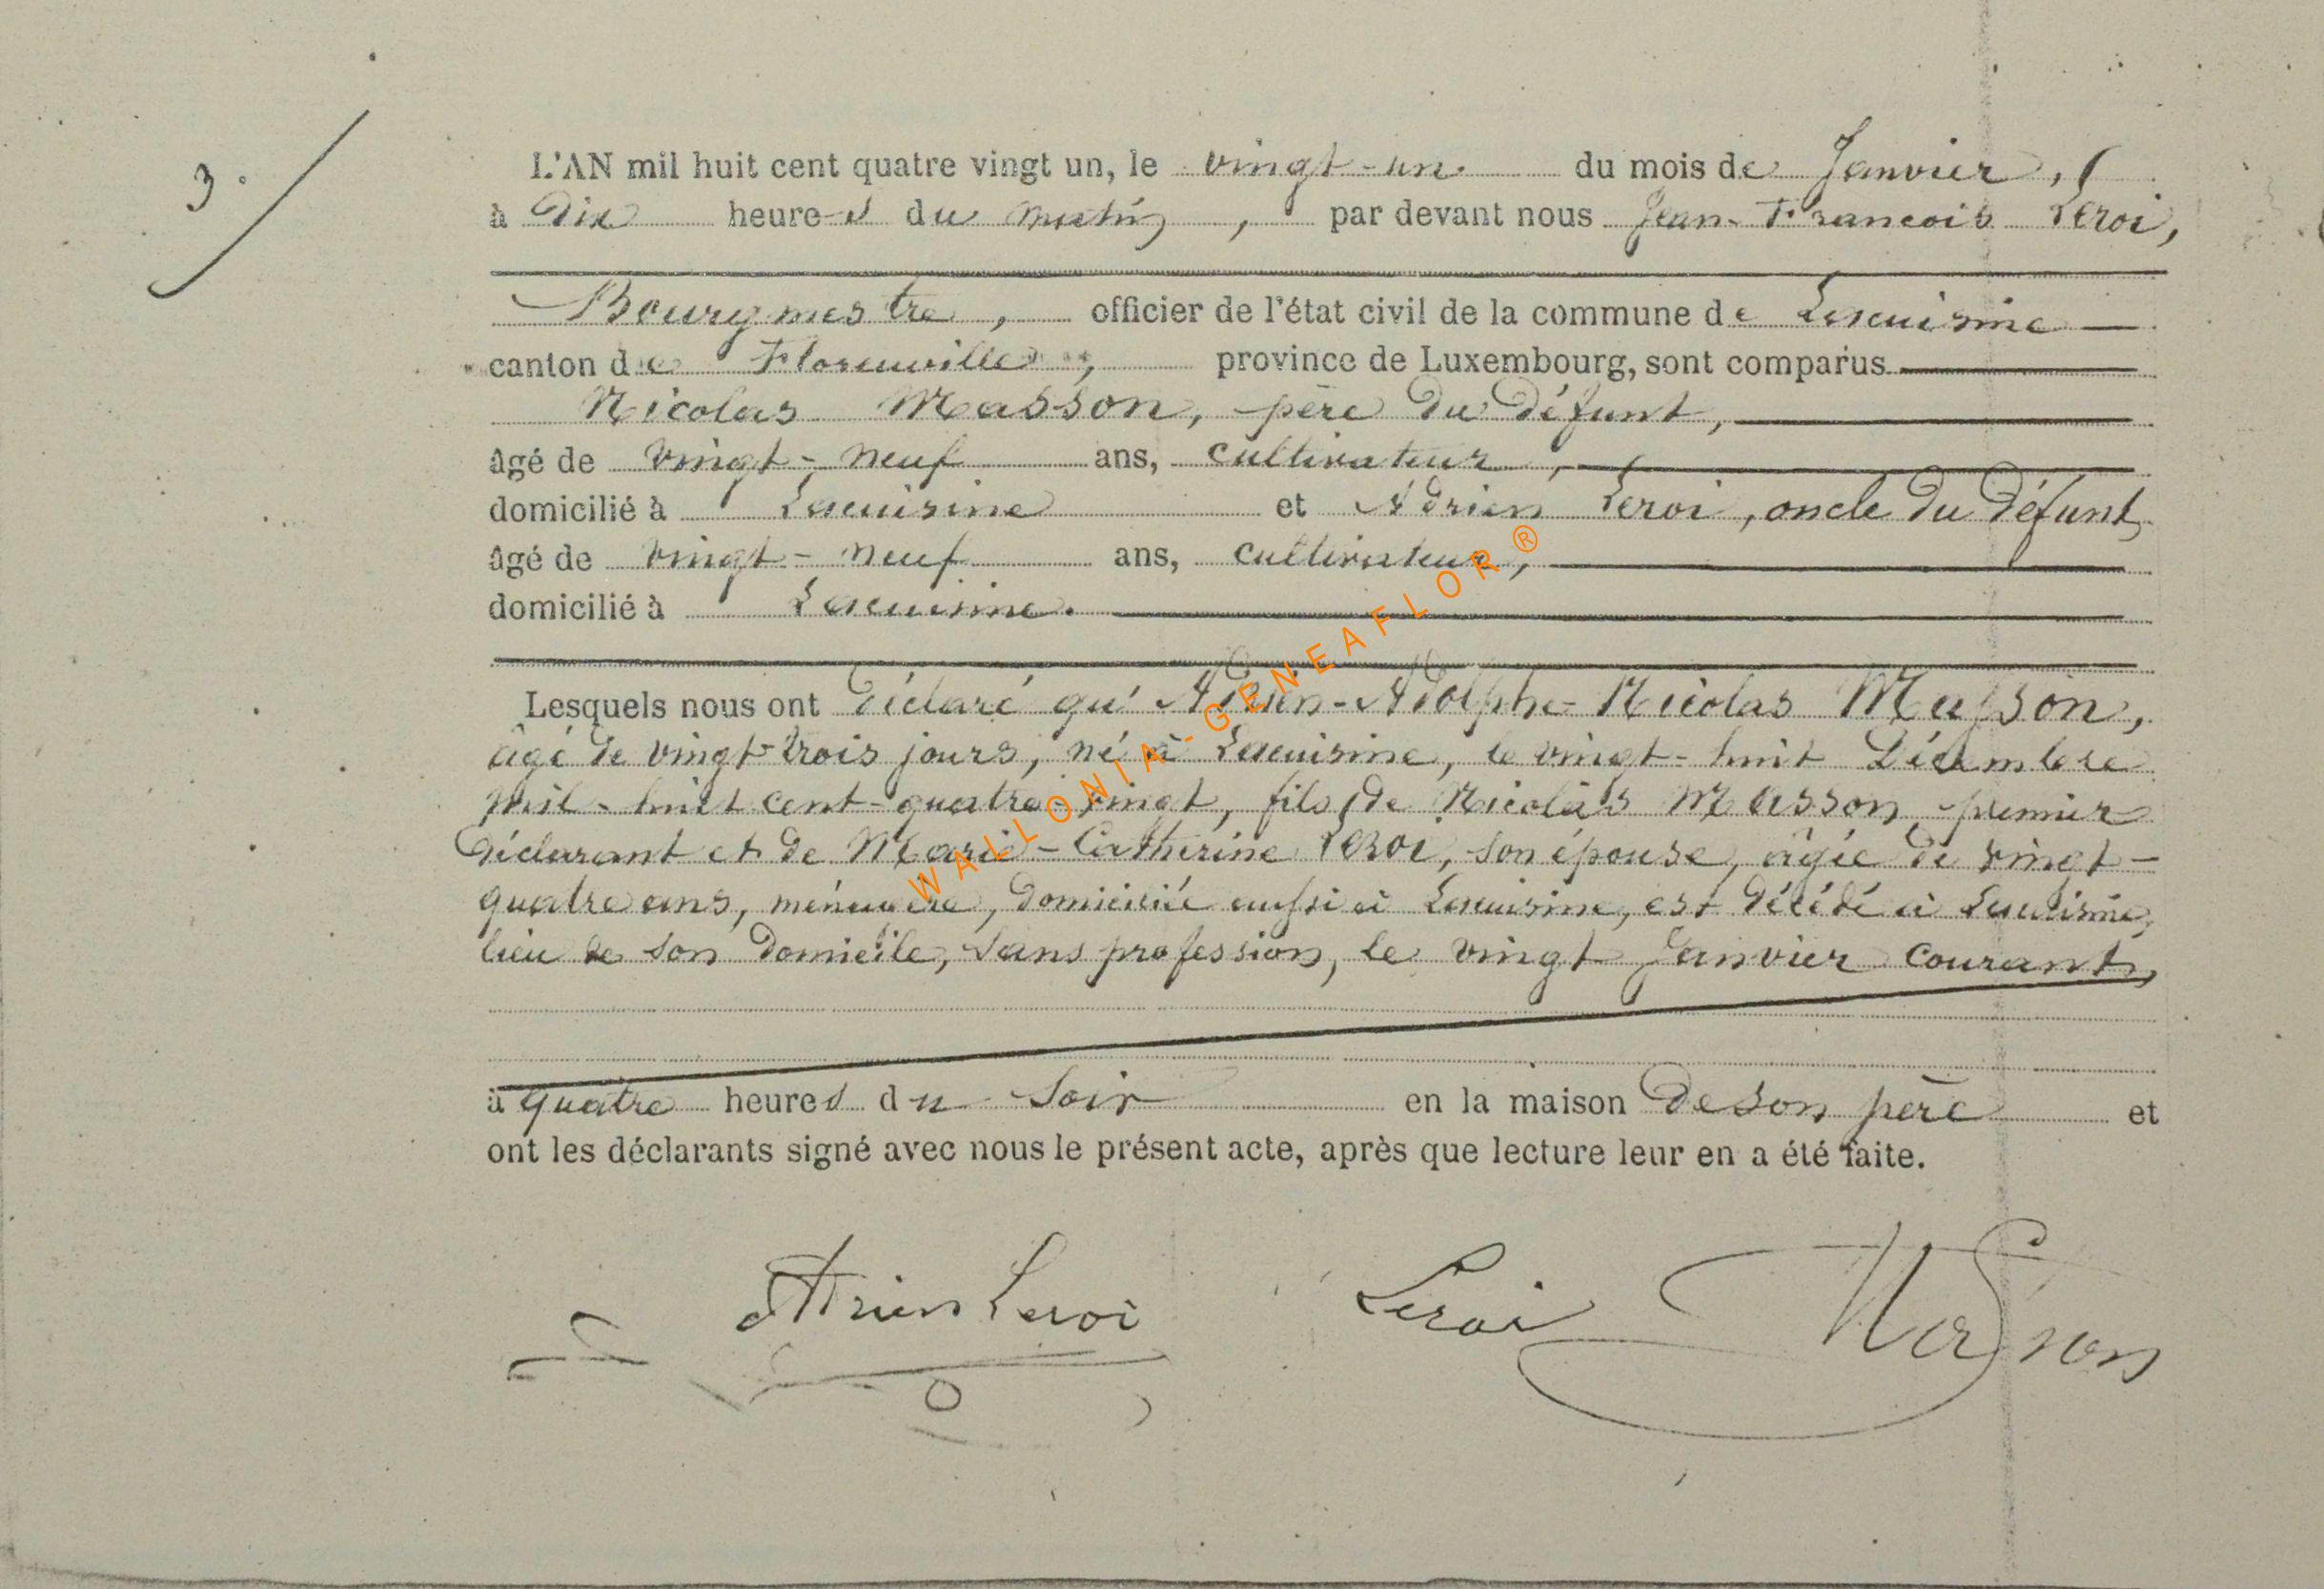 3.
L'AN mil huit cent quatre vingt un, le vingt-un du mois de Janvier,
à Dix heures du matin, par devant nous Jean-François Leroi,
Bourgmestre, officier de l'état civil de la commune de Lacuisine
canton de Florenville, province de Luxembourg, sont comparus
Nicolas Masson, père du défunt,
âgé de vingt-neuf ans, cultivateur,
domicilié à Lacuisine et Adrien Leroi, oncle du défunt,
âgé de vingt-neuf ans, cultivateur,
domicilié à Lacuisine.
Lesquels nous ont déclaré qu'Adrien-Adolphe-Nicolas Masson,
âgé de vingt-trois jours, né à Lacuisine, le vingt-huit Décembre
mil-huit cent-quatre-vingt, fils de Nicolas Masson, premier
déclarant et de Marie-Catherine Leroi, son épouse, âgée de vingt-
quatre ans, ménagère, domiciliée aussi à Lacuisine, est décédé à Lacuisine,
lieu de son domicile, sans profession, le vingt Janvier courant,
à quatre heures du soir en la maison de son père et
ont les déclarants signé avec nous le présent acte, après que lecture leur en a été faite.
Adrien Leroi Leroi Masson
WALLONIA-GENEAFLOR®